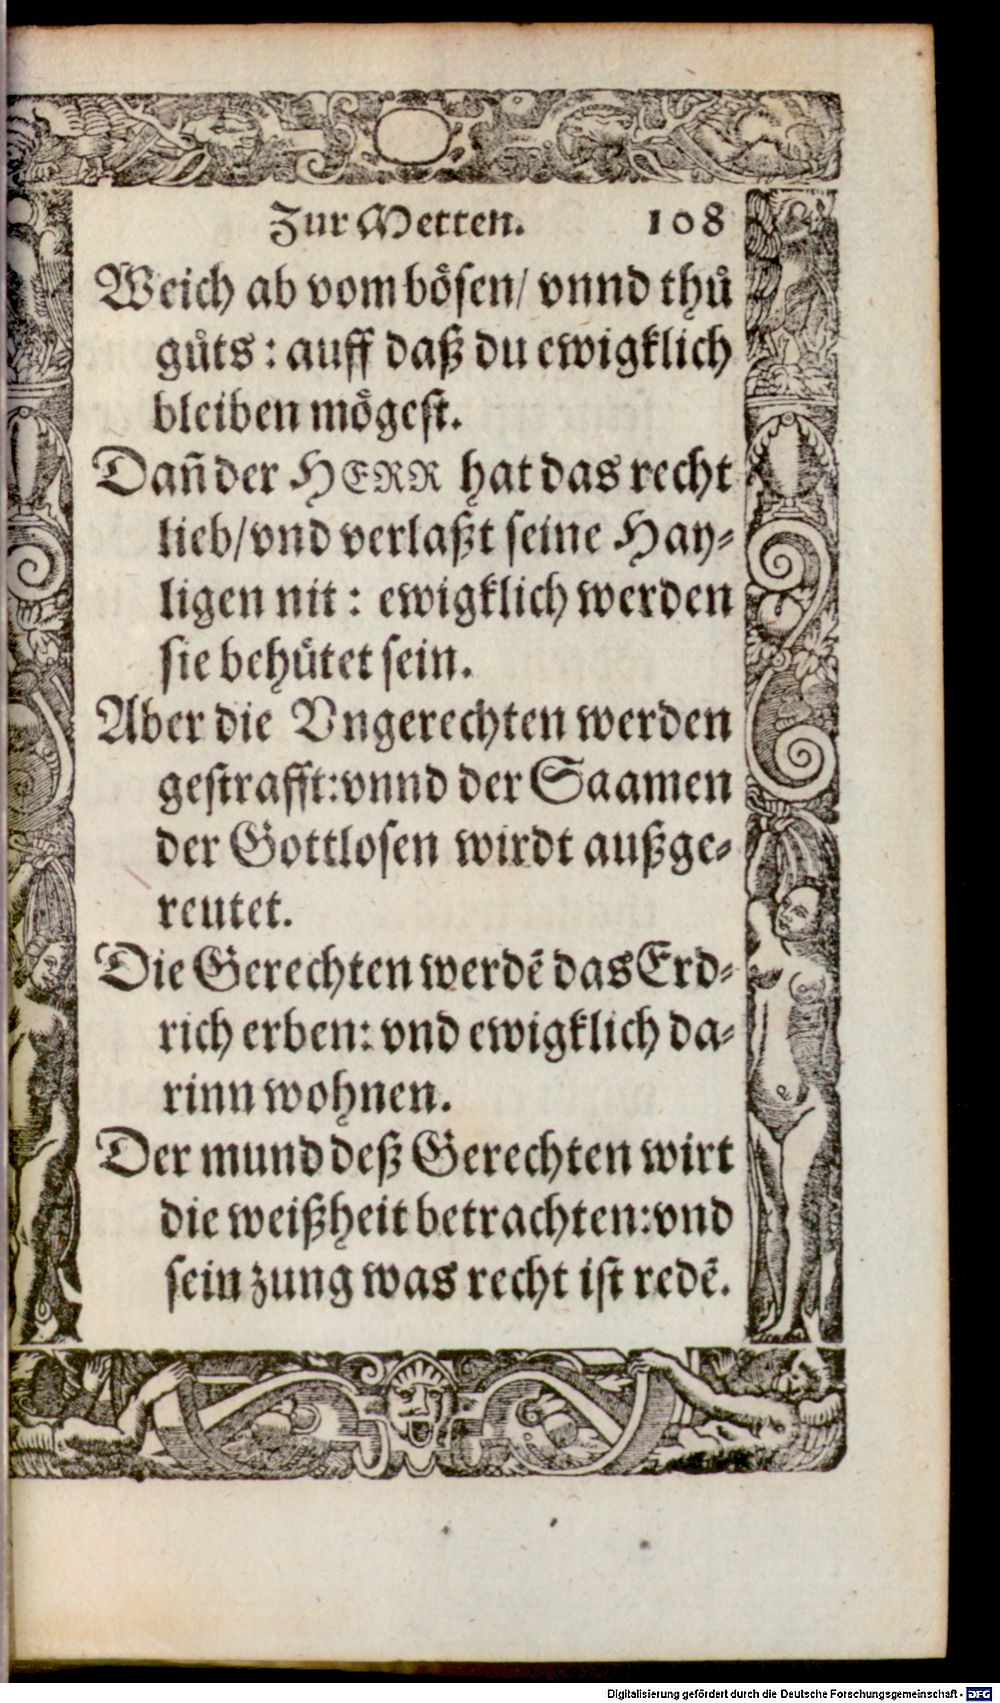 Zur Metten. 108
Weich ab vom bösen/ vnnd thů
gůts: auff daß du ewigklich
bleiben mögest.
Dañ der HERR hat das recht
lieb/vnd verlaßt seine Hay-
ligen nit: ewigklich werden
sie behütet sein.
Aber die Vngerechten werden
gestrafft:vnnd der Saamen
der Gottlosen wirdt außge-
reutet.
Die Gerechten werdẽ das Erd-
rich erben: vnd ewigklich da-
rinn wohnen.
Der mund deß Gerechten wirt
die weißheit betrachten:vnd
sein zung was recht ist redẽ.
Digitalisierung gefördert durch die Deutsche Forschungsgemeinschaft - DFG